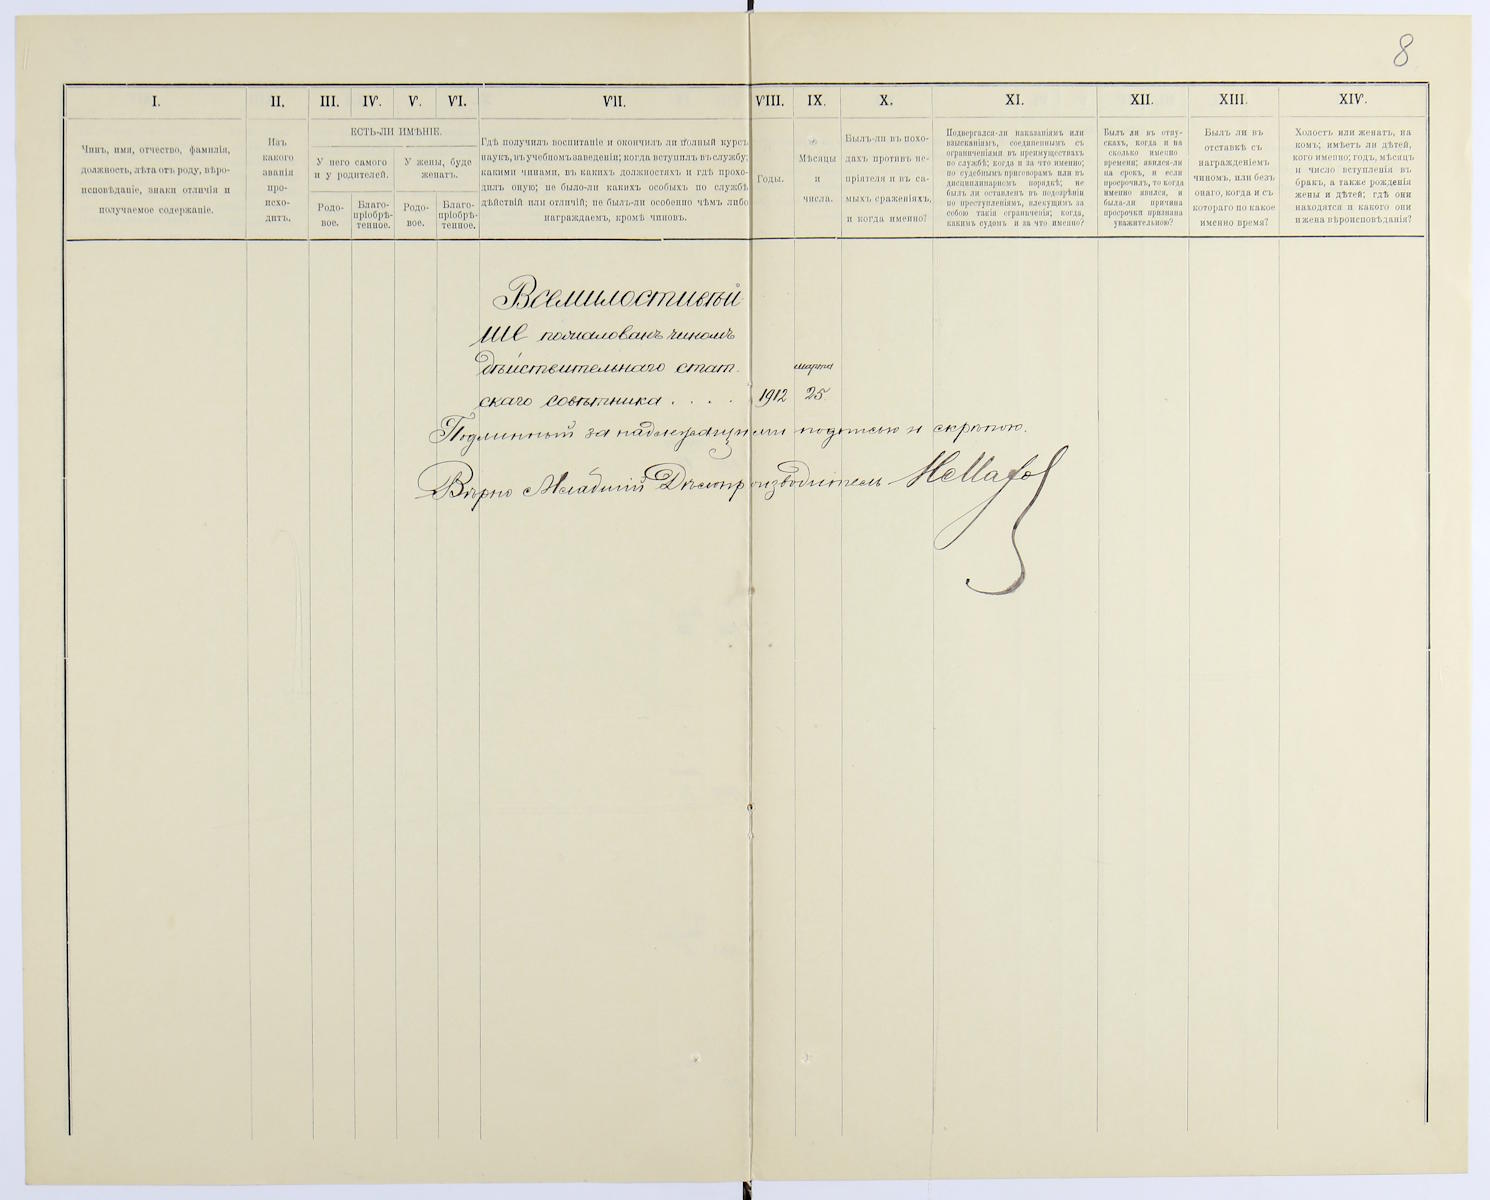 8
I.
II.
III.
IV.
V.
VI.
VII.
VIII.
IX.
X.
XI.
XII.
XIII.
XIV.
Чинъ, имя, отчество, фамилія,
должность, лѣта отъ роду, вѣро-
исповѣданіе, знаки отличія и
получаемое содержаніе.
Изъ
какого
званія
про-
исхо-
дитъ.
ЕСТЬ-ЛИ ИМѢНІЕ.
У него самого
и у родителей.
У жены, буде
женатъ.
Родо-
вое.
Благо-
пріобрѣ-
тенное.
Родо-
вое.
Благо-
пріобрѣ-
тенное.
Гдѣ получилъ воспитаніе и окончилъ ли полный курсъ
наукъ, въ учебномъ заведеніи; когда вступилъ въ службу;
какими чинами, въ какихъ должностяхъ и гдѣ прохо-
дилъ оную; не было-ли какихъ особыхъ по службѣ
дѣйствій или отличій; не былъ-ли особенно чѣмъ либо
награждаемъ, кромѣ чиновъ.
Годы.
Мѣсяцы
и
числа.
Былъ-ли въ похо-
дахъ противъ не-
пріятеля и въ са-
мыхъ сраженіяхъ,
и когда именно?
Подвергался-ли наказаніямъ или
взысканіямъ, соединеннымъ съ
ограниченіями въ преимуществахъ
по службѣ; когда и за что именно;
по судебнымъ приговорамъ или въ
дисциплинарномъ порядкѣ; не
былъ ли оставленъ въ подозрѣніи
по преступленіямъ, влекущимъ за
собою такія ограниченія; когда,
какимъ судомъ и за что именно?
Былъ ли въ отпу-
скахъ, когда и на
сколько именно
времени; явился-ли
на срокъ, и если
просрочилъ, то когда
именно явился, и
была-ли причина
просрочки признана
уважительною?
Былъ ли въ
отставкѣ съ
награжденіемъ
чиномъ, или безъ
онаго, когда и съ
котораго по какое
именно время?
Холостъ или женатъ, на
комъ; имѣетъ ли дѣтей,
кого именно; годъ, мѣсяцъ
и число вступленія въ
бракъ, а также рожденія
жены и дѣтей; гдѣ они
находятся и какого они
и жена вѣроисповѣданія?
Всемилостивѣй
ше пожалованъ чиномъ
дѣйствительнаго стат
скаго совѣтника . . . . 1912 марта 25.
Подлинный за надлежащими подписью и скрѣпою.
Вѣрно Младшій Дѣлопроизводитель